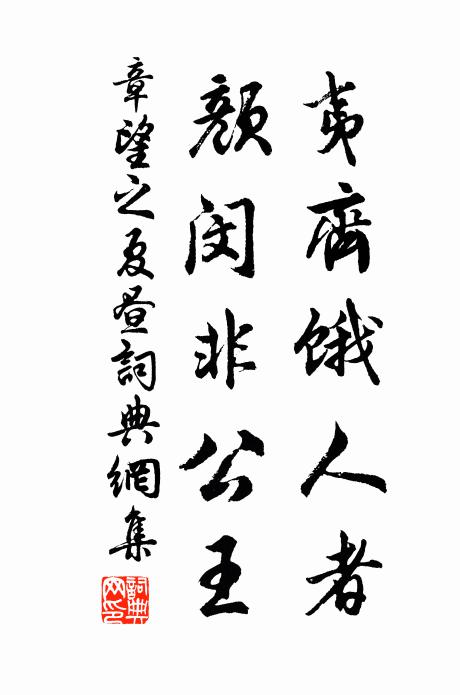 夷齊餓人者
顏閔非公王
章望之夏晝詞典網集
詞典网印